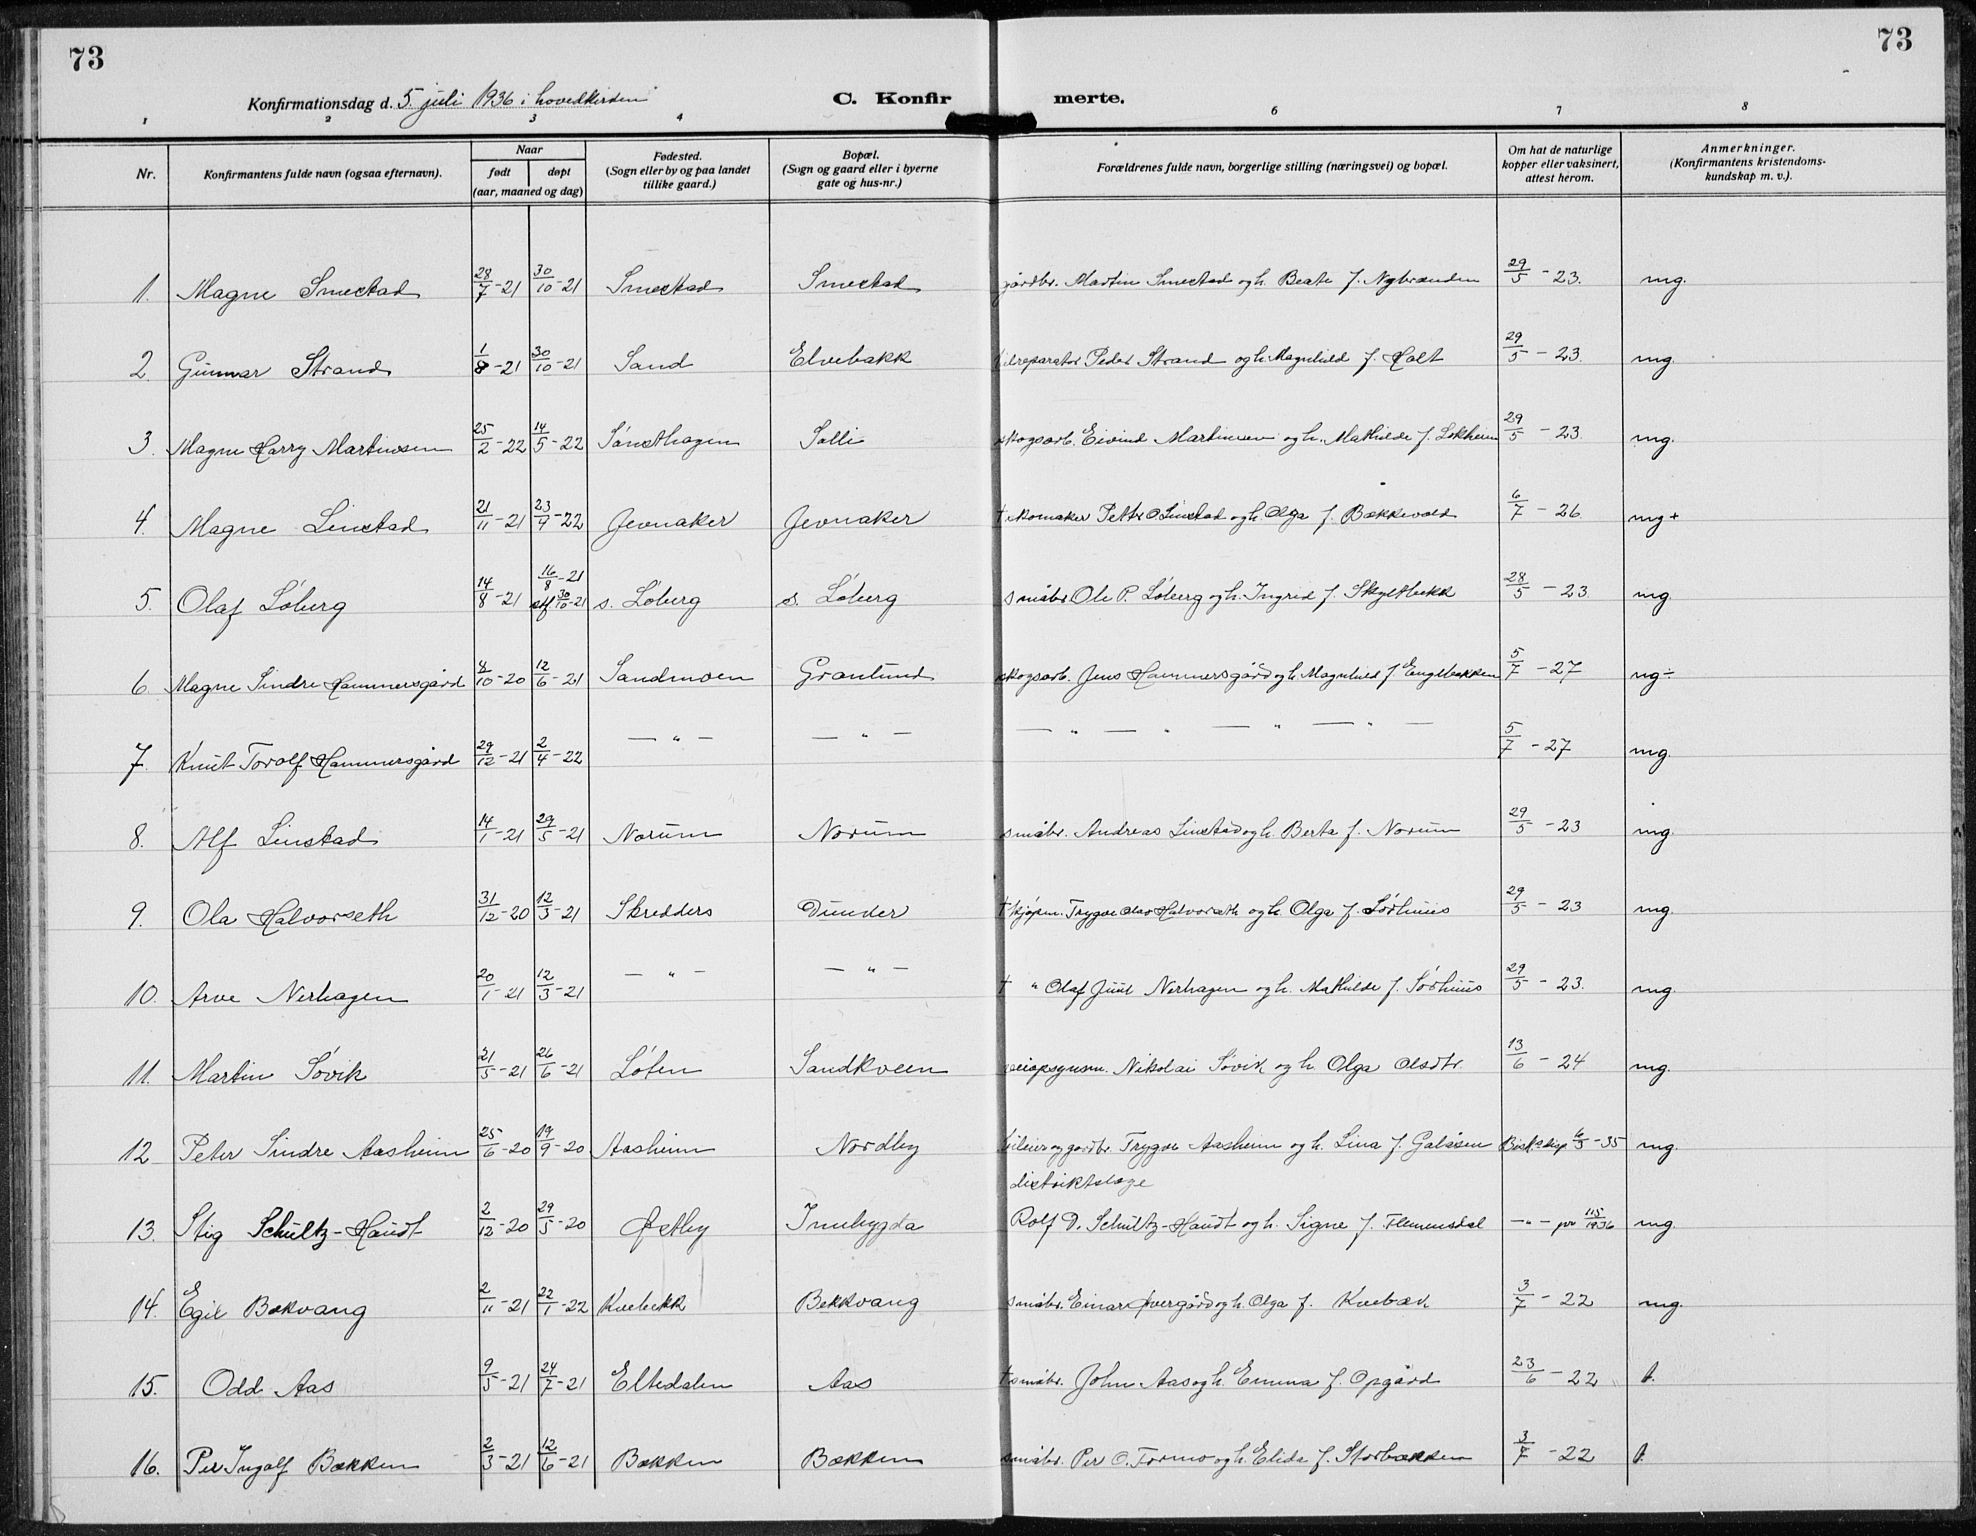 73
73
Konfirmationsdag d. 5. juli 1936 i hovedkirken
C. Konfirmerte.
1 2 3 4 6 7 8
Nr.
Konfirmantens fulde navn (ogsaa efternavn).
Naar
født døpt
(aar, maaned og dag)
Fødested.
(Sogn eller by og paa landet
tillike gaard.)
Bopæl.
(Sogn og gaard eller i byerne
gate og hus-nr.)
Forældrenes fulde navn, borgerlige stilling (næringsvei) og bopæl.
Om hat de naturlige
kopper eller vaksinert,
attest herom.
Anmerkninger.
(Konfirmantens kristendoms-
kundskap m. v.).
1. Magne Smestad 28/7-21 30/10-21 Smestad Smestad gårdbr. Martin Smestad og h. Beate f. Nybrenden 29/5-23. mg.
2. Gunnar Strand 1/8-21 30/10-21 Sand Elvebakk bilreparatør Peder Strand og h. Magnhild f. Holt 29/5-23. mg.
3. Magne Harry Martinsen 25/2-22 14/5-22 Sønsthagen Solli skogsarb. Eivind Martinsen og h. Mathilde f. 29/5-23. mg.
4. Magne Linstad 21/11-21 23/4-22 Jevnaker Jevnaker † skomaker Petter O. Linstad og h. Olga f. Bækkevold 6/7-26 mg+
5. Olaf Løberg 14/8-21 16/8-21 stf 30/10-21 s. Løberg s. Løberg småbr. Ole P. Løberg og h. Ingrid f. 28/5-23. mg.
6. Magne Sindre Hammersgård 8/10-20 12/6-21 Sandmoen Granlund skogsarb. Jens Hammersgård og h. Magnhild f. Engebakken 5/7-27 mg÷
7. Knut Torolf Hammersgård 29/12-21 2/4-22 — " — — " — — " — " — " — " — 5/7-27 mg.
8. Alf Linstad 14/1-21 29/5-21 Norum Norum småbr. Andreas Linstad og h. Berta f. Norum 29/5-23 mg.
9. Ola Halvorseth 31/12-20 12/3-21 Skredders Dunder † kjøpm. Trygve Olav Halvorseth og h. Olga f. Sørhuus 29/5-23 mg.
10. Arve Nerhagen 20/1-21 12/3-21 — " — — " — † " Olaf Juul Nerhagen og h. Mathilde f. Sørhuus 29/5-23. mg.
11. Martin Søvik 21/5-21 26/6-21 Løten Sandkveen veiopsynsm. Nikolai Søvik og h. Olga Olsdtr. 13/6-24 mg.
12 Peter Sindre Aasheim 25/6-20 19/9-20 Aasheim Nordby bileier og gardbr. Trygve Aasheim og h. Lina f. Galåsen Bisk. disp 6/3-35 mg.
distriktslæge
13. Stig Schultz-Haudt 2/12-20 29/5-20 Østby Innbygda Rolf D. Schultz-Haudt og h. Signe f. Flemensdal —"— pr 115/1936 mg.
14. Egil Bækvang 2/11-21 22/1-22 Kvebekk Bekkvang småbr. Einar Øvergård og h. Olga f. Kvebæk 3/7-22 mg.
15. Odd Aas 9/5-21 24/7-21 Eltedalen Aas † småbr. John Aas og h. Emma f. Opgård 23/6-22 t.
16. Per Ingolf Bækken 2/3-21 12/6-21 Bækken Bækken småbr. Per O. Formo og h. Elida f. Storbækken 3/7-22 t.